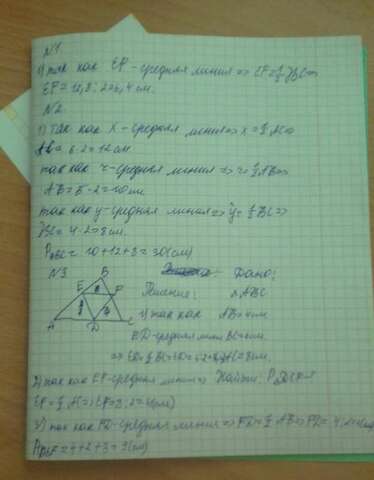 N1
1) так как EF - средняя линия => EF = ½ BC =>
EF = 12,8 : 2 = 6,4 см.
N2
1) Так как X - средняя линия => x = ½ AC =>
6·2 = 12 см
так как z - средняя линия => z = ½ AB =>
AB = 5·2 = 10 см.
так как y - средняя линия => y = ½ BC =>
BC = 4·2 = 8 см.
P ABC = 10+12+8 = 30 (см)
N3 B Дано:
E F Решение: △ABC
1) так как AB = 4 см
A D C ED - средняя линия BC = 6 см
=> ED = ½ BC => AC = 8 см.
2) так как EF - средняя линия => Найти: P
EF = ½ AC => EF = 8:2 = 4 (см)
3) так как FD - средняя линия => FD = ½ AB => FD = 4:2 =
= 4+2+3 = 9 (см)